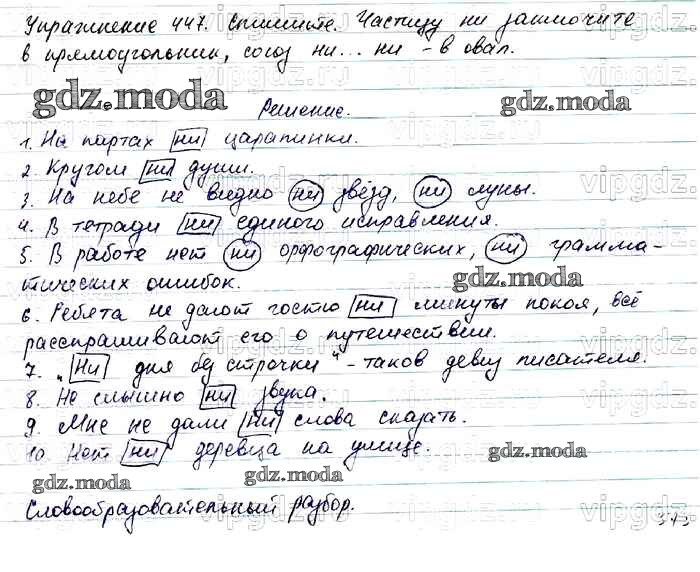 Упражнение 447. Спишите. Частицу ни заключите
в прямоугольник, союз ни... ни - в овал.
gdz.moda
Решение.
1. На партах ни царапинки.
2. Кругом ни души.
3. На небе не видно ни звёзд, ни луны.
4. В тетради ни единого исправления.
5. В работе нет ни орфографических, ни грамма-
тических ошибок.
gdz.moda
6. Ребята не дают гостю ни минуты покоя, всё
расспрашивают его о путешествии.
7. „Ни дня без строчки" - таков девиз писателя.
8. Не слышно ни звука.
9. Мне не дали ни слова сказать.
10. Нет ни деревца на улице.
gdz.moda
gdz.moda
gdz.moda
Словообразовательный разбор.
vipgdz.ru